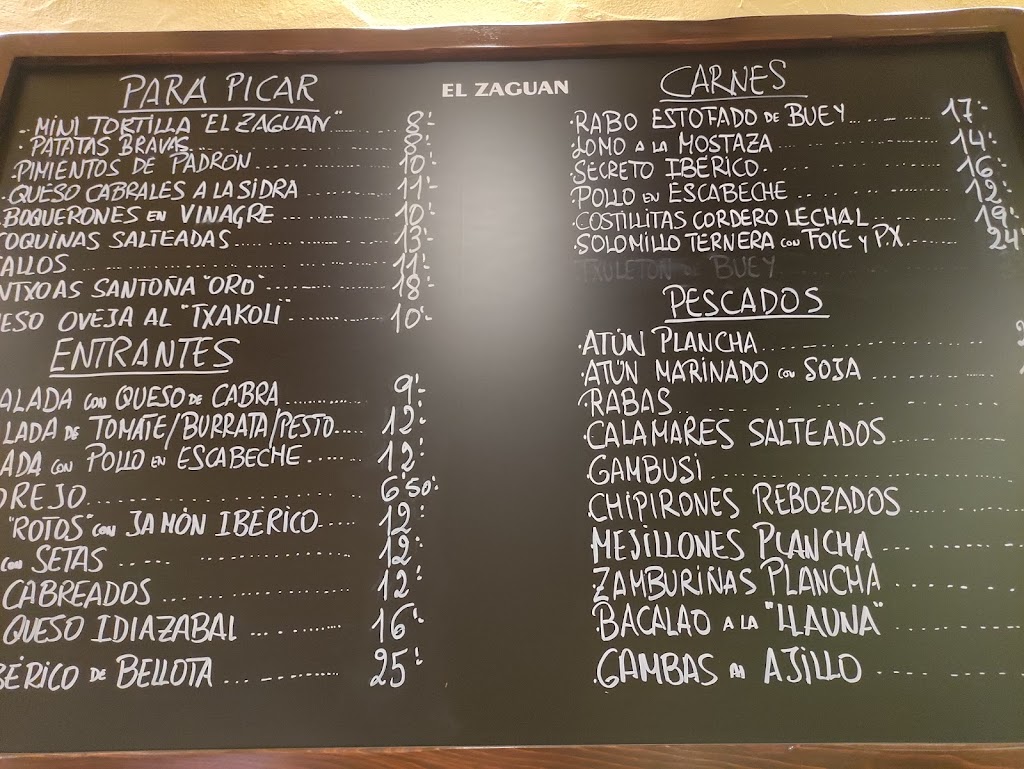 EL ZAGUAN
PARA PICAR
MINI TORTILLA "EL ZAGUAN" 8'-
PATATAS BRAVAS 8'-
PIMIENTOS DE PADRÓN 10'-
QUESO CABRALES A LA SIDRA 11'-
BOQUERONES EN VINAGRE 10'-
COQUINAS SALTEADAS 13'-
CALLOS 11'-
SANTOÑA "ORO" 18'-
OVEJA AL "TXAKOLI" 10'-
ENTRANTES
CON QUESO DE CABRA 9'-
DE TOMATE/BURRATA/PESTO 12'-
CON POLLO EN ESCABECHE 12'-
6'50
"ROTOS" CON JAMÓN IBÉRICO 12'-
CON SETAS 12'-
CABREADOS 12'-
QUESO IDIAZABAL 16'-
IBÉRICO DE BELLOTA 25'-
CARNES
RABO ESTOFADO DE BUEY 17'-
LOMO A LA MOSTAZA 14'-
SECRETO IBÉRICO 16'-
POLLO EN ESCABECHE 12'-
COSTILLITAS CORDERO LECHAL 19'-
SOLOMILLO TERNERA CON FOIE Y P.X. 24'
TXULETON DE BUEY
PESCADOS
ATÚN PLANCHA
ATÚN MARINADO CON SOJA
RABAS
CALAMARES SALTEADOS
GAMBUSI
CHIPIRONES REBOZADOS
MEJILLONES PLANCHA
ZAMBURIÑAS PLANCHA
BACALAO A LA "LLAUNA"
GAMBAS AL AJILLO